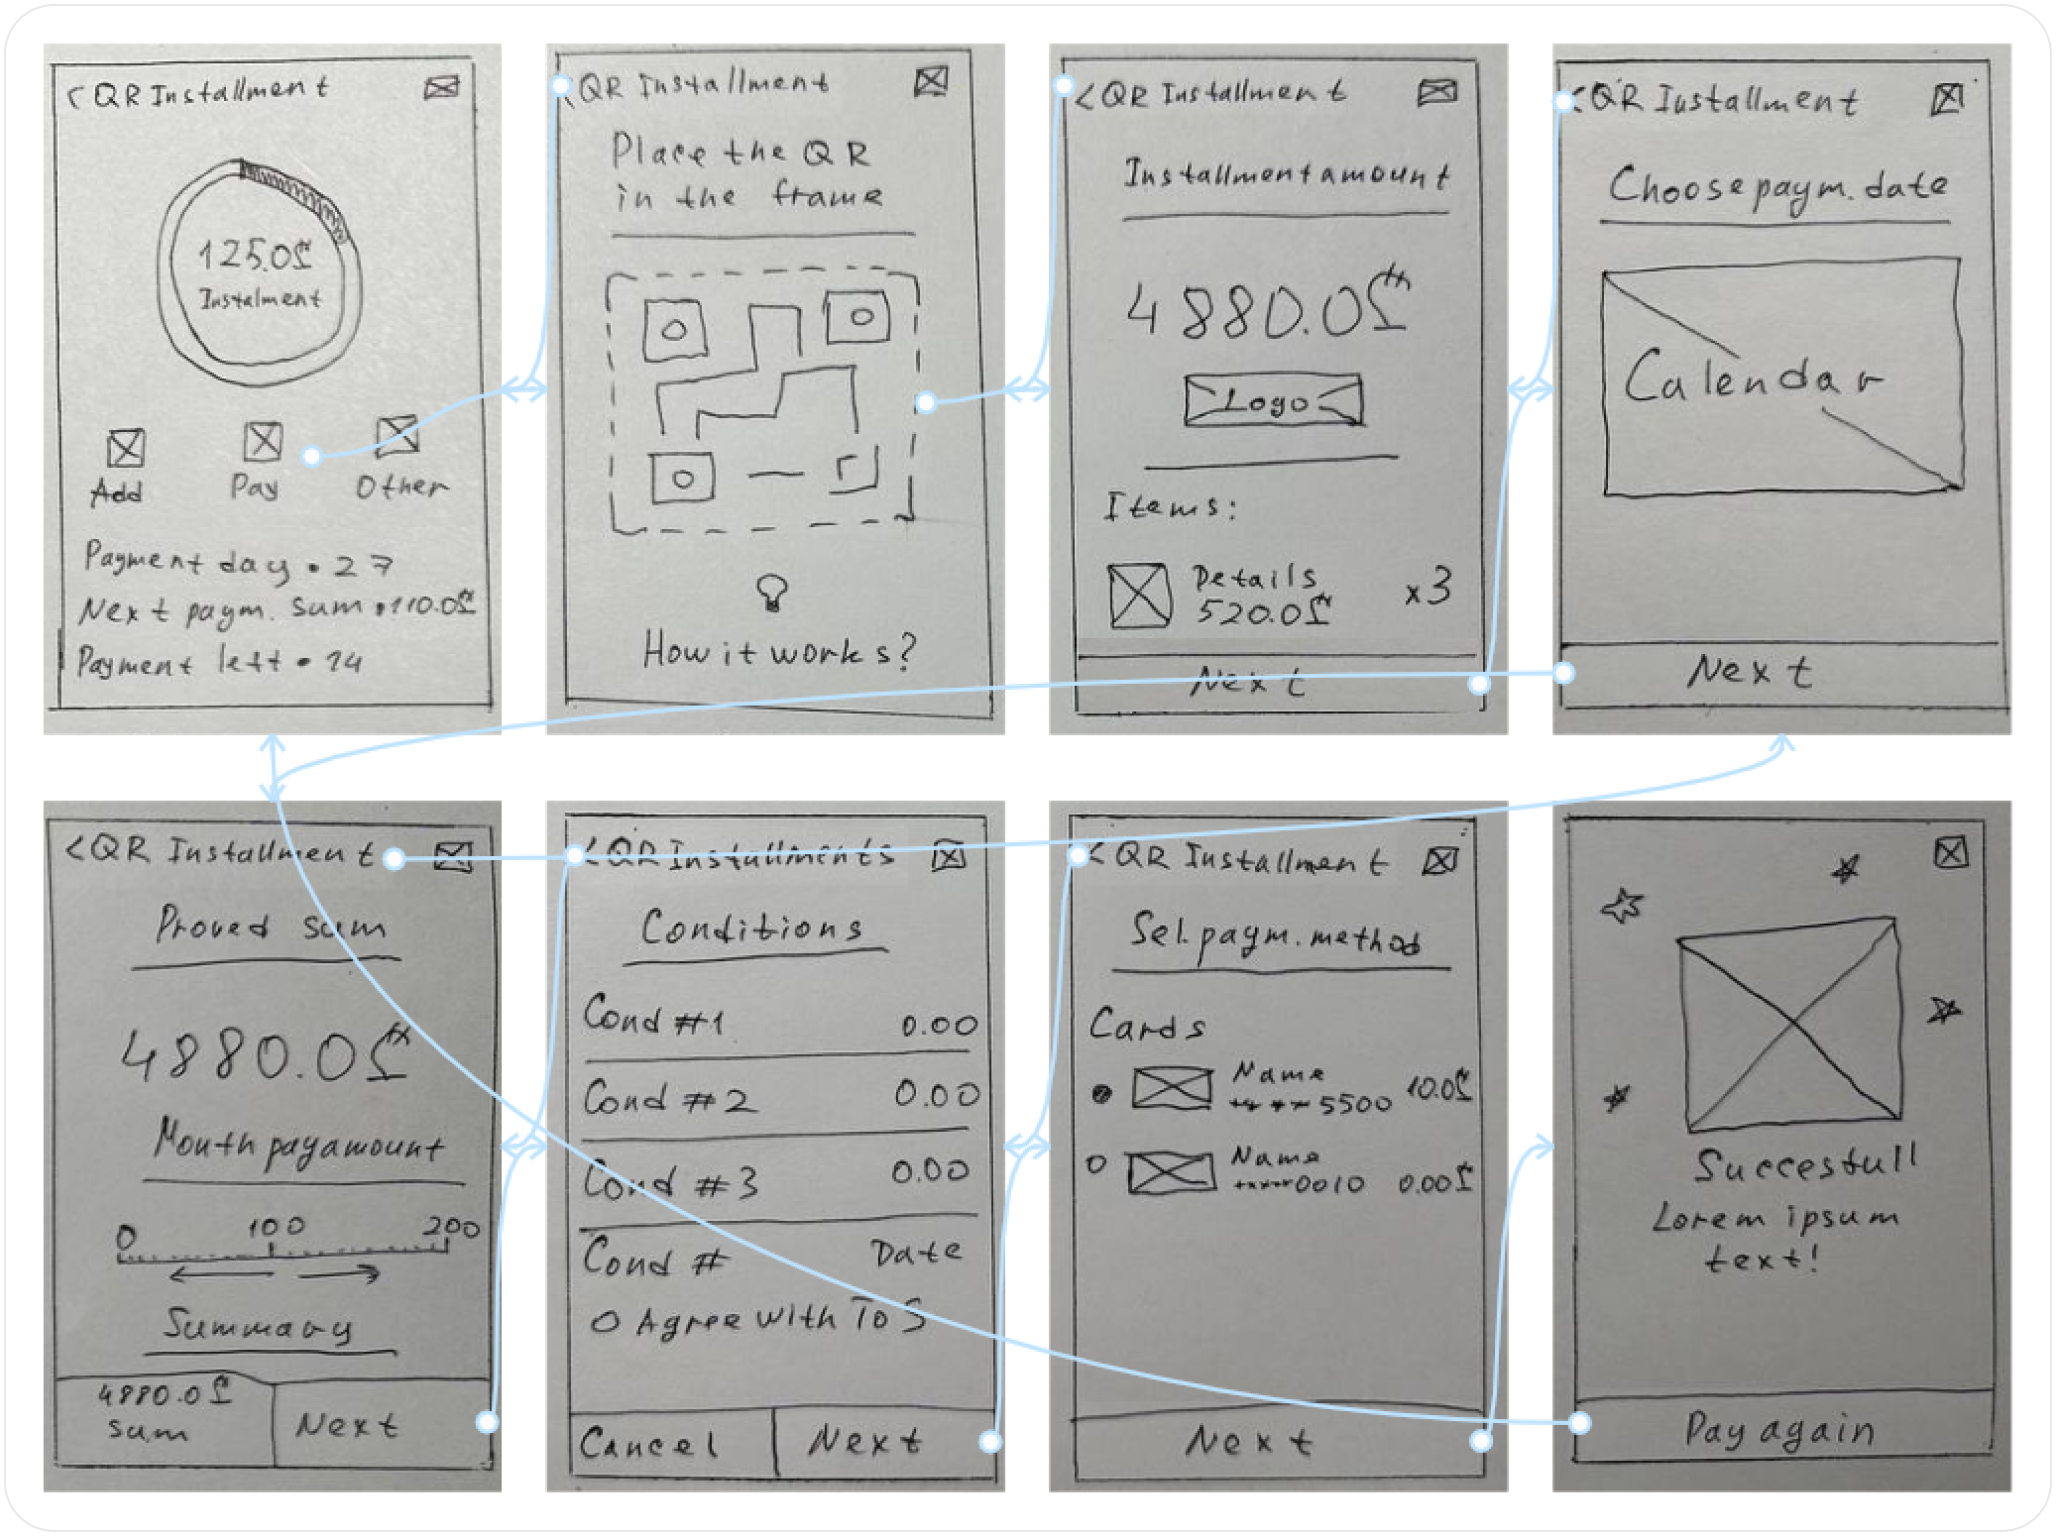 < QR Installment
125.0₾
Instalment
Add Pay Other
Payment day • 27
Next paym. sum • 110.0₾
Payment left • 14
< QR Installment
Place the QR
in the frame
How it works?
< QR Installment
Installment amount
4880.0₾
Logo
Items:
Details
520.0₾
x3
Next
< QR Installment
Choose paym. date
Calendar
Next
< QR Installment
Proved sum
4880.0₾
Month pay amount
0 100 200
Summary
4880.0₾
sum
Next
< QR Installments
Conditions
Cond #1 0.00
Cond #2 0.00
Cond #3 0.00
Cond # Date
O Agree with ToS
Cancel Next
< QR Installment
Sel. paym. method
Cards
Name
** ** 5500 10.0₾
Name
*****0010 0.00₾
Next
Succesfull
Lorem ipsum
text!
Pay again